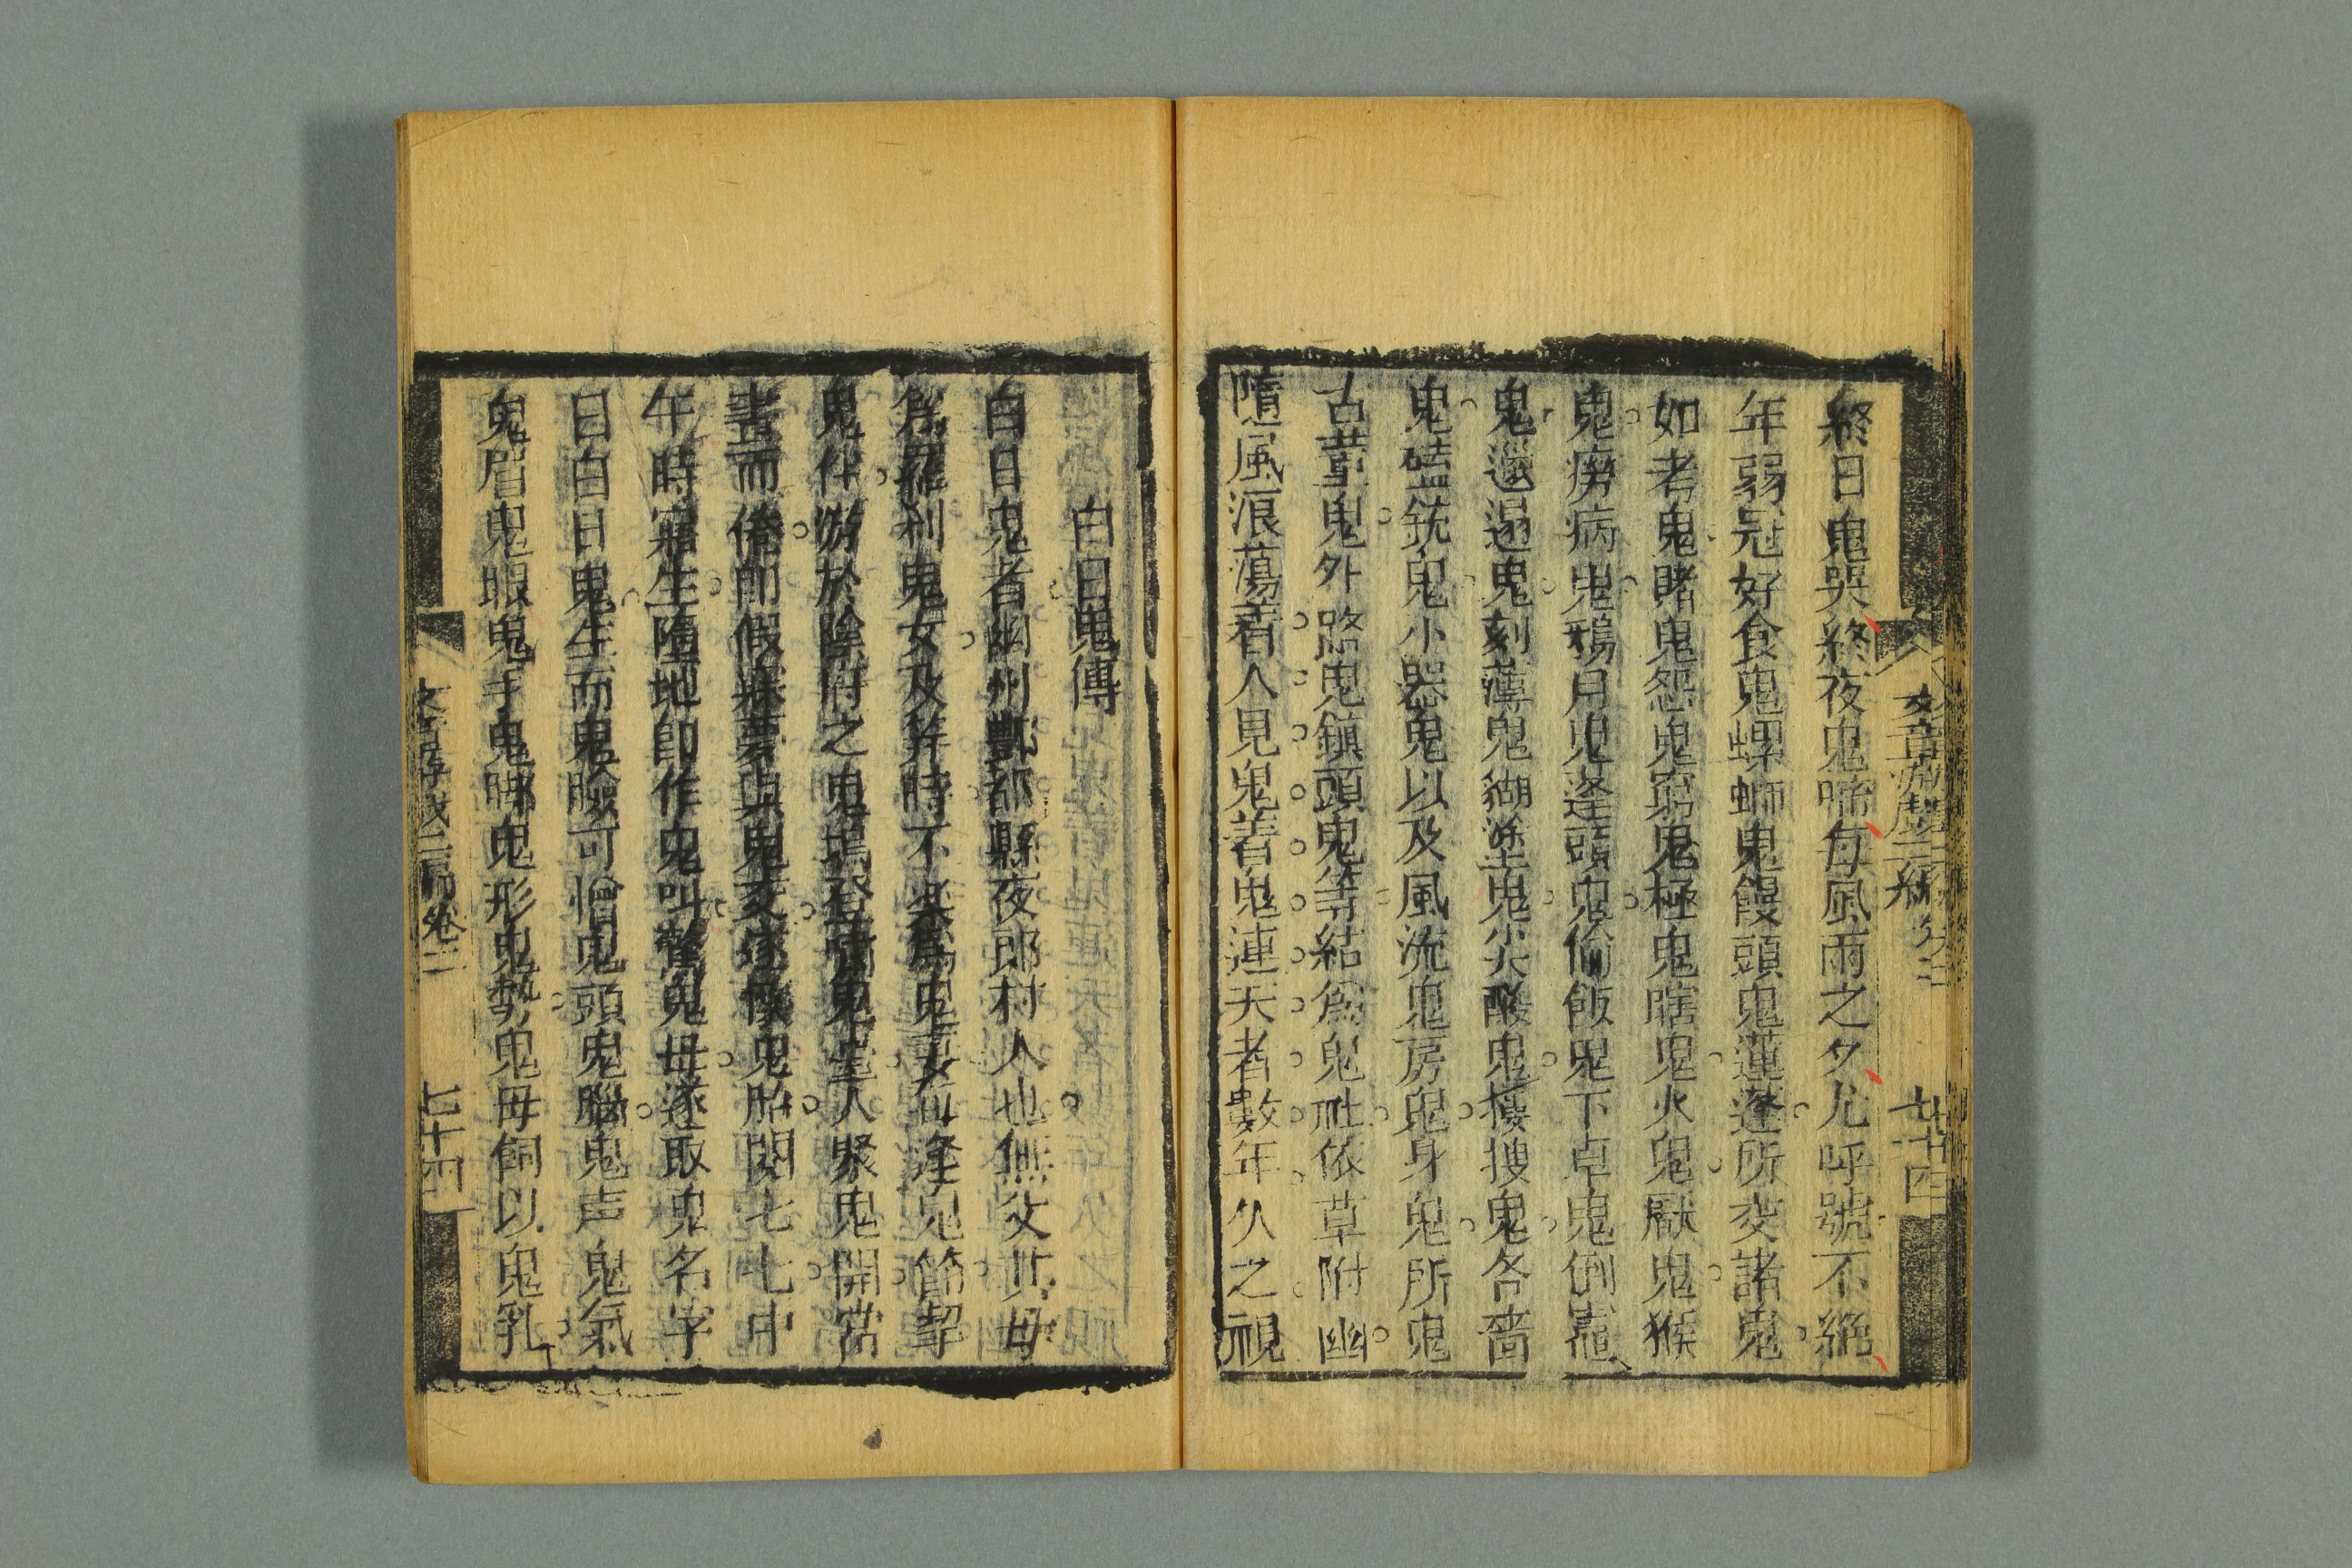 終日鬼哭終夜鬼啼每風雨之夕尤呼號不絕
年弱冠好食鬼螺螄鬼饅頭鬼蓮蓬所交諸鬼
如老鬼賭鬼怨鬼窮鬼極鬼瞎鬼火鬼厭鬼猴
鬼癆病鬼鴉片鬼蓬頭鬼偷飯鬼下卓鬼倒竈
鬼邋遢鬼刻薄鬼糊塗鬼尖酸鬼摟搜鬼各嗇
鬼磕銃鬼小器鬼以及風流鬼房鬼身鬼所鬼
古董鬼外路鬼鎮頭鬼等結爲鬼社依草附幽
隨風浪蕩着人見鬼着鬼連天者數年久之視
白日鬼傳
白日鬼者幽州酆都縣夜郎村人也無父其母
係羅刹鬼女及笄時不樂爲鬼妻女每逢鬼節挈
鬼伴游於陰府之鬼塢登嘯鬼臺人聚鬼開常
晝而倦即假寐夢與鬼交遂懷鬼胎閱七七中
午時寤生墮地即作鬼叫驚鬼母遂取鬼名字
曰白日鬼生而鬼臉可憎鬼頭鬼腦鬼声鬼氣
鬼眉鬼眼鬼手鬼脚鬼形鬼勢鬼母飼以鬼乳
文章游戲二編 卷二 七十四